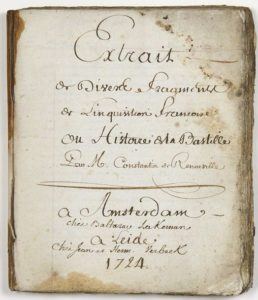 Extrait
de Divers Fragments
de Linquisition francoise
ou Histoire de la Bastille
Par M. Constantin de Renneville
a Amsterdam
chés Baltazar Lakeman
a Leide
chés Jean et Henri Verbeek
1724